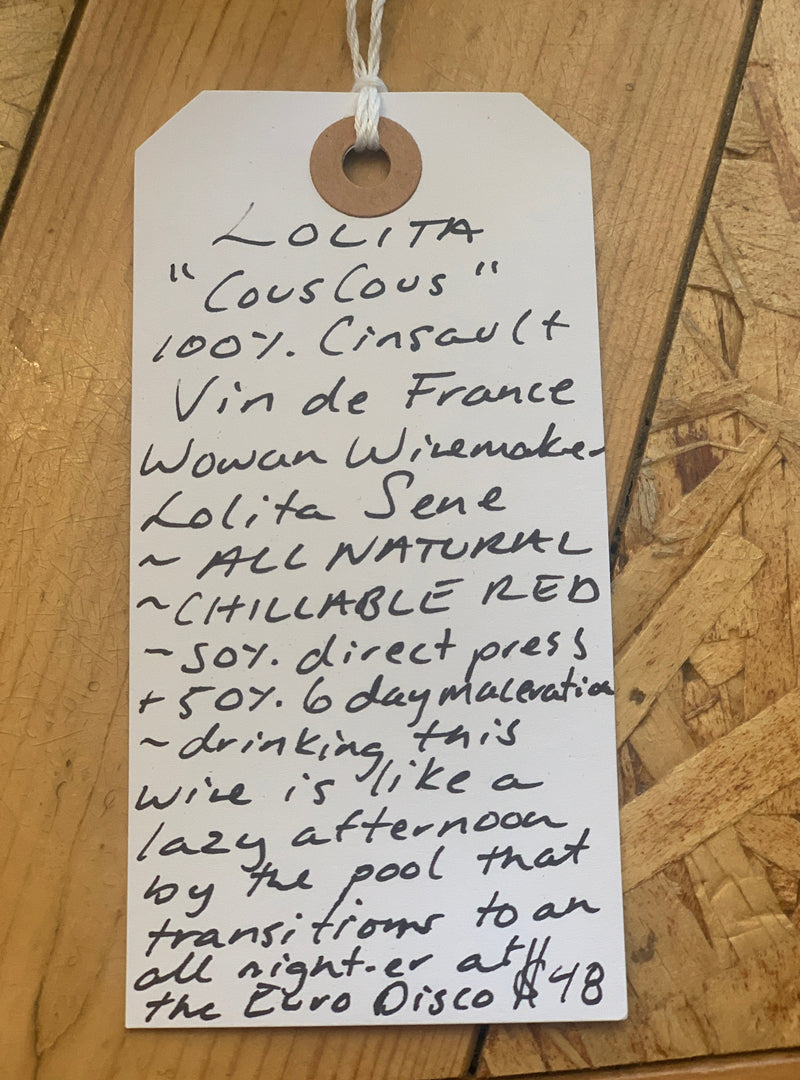 LOLITA
"CousCous"
100%. Cinsault
Vin de France
Woman Winemaker
Lolita Sene
~ ALL NATURAL
~CHILLABLE RED
~50%. direct press
+ 50%. 6 day maceration
~drinking this
wine is like a
lazy afternoon
by the pool that
transitions to an
all night-er at
the Euro Disco $48